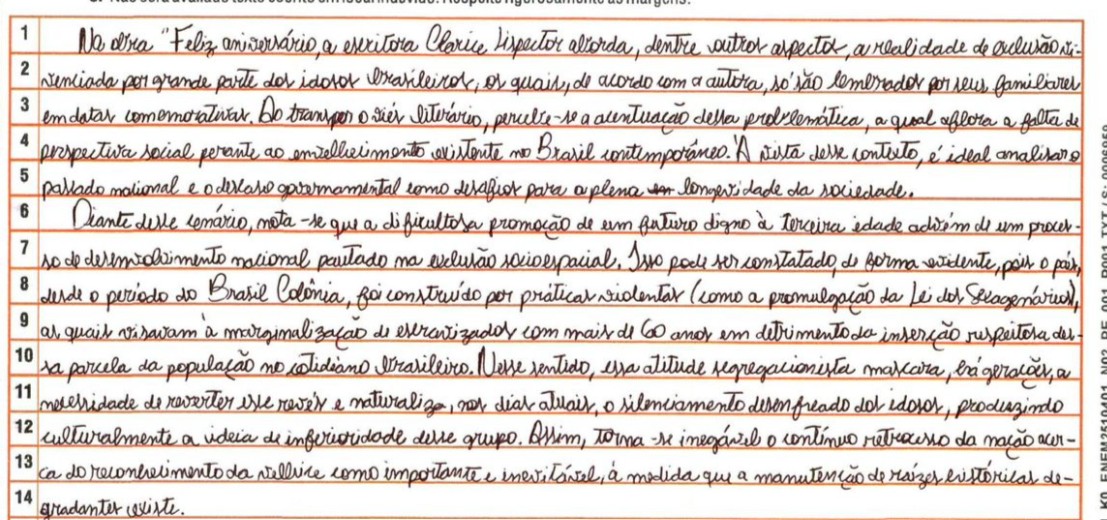 1 Na obra "Feliz aniversário, a escritora Clarice Lispector aborda, dentre outros aspectos, a realidade de exclusão vi-
2 venciada por grande parte dos idosos brasileiros, os quais, de acordo com a autora, só são lembrados por seus familiares
3 em datas comemorativas. Ao transpor o viés literário, percebe-se a acentuação dessa problemática, a qual aflora a falta de
4 perspectiva social perante ao envelhecimento existente no Brasil contemporâneo. À vista desse contexto, é ideal analisar o
5 passado nacional e o descaso governamental como desafios para a plena longevidade da sociedade.
6 Diante desse cenário, nota-se que a dificultosa promoção de um futuro digno à terceira idade advém de um proces-
7 so de desenvolvimento nacional pautado na exclusão socioespacial. Isso pode ser constatado, de forma evidente, pois o país,
8 desde o período do Brasil Colônia, foi construído por práticas violentas (como a promulgação da Lei dos Sexagenários),
9 as quais visavam à marginalização de escravizados com mais de 60 anos em detrimento da inserção respeitosa des-
10 sa parcela da população no cotidiano brasileiro. Nesse sentido, essa atitude segregacionista mascara, há gerações, a
11 necessidade de reverter esse revés e naturaliza, nos dias atuais, o silenciamento desenfreado dos idosos, produzindo
12 culturalmente a ideia de inferioridade desse grupo. Assim, torna-se inegável o contínuo retrocesso da nação acer-
13 ca do reconhecimento da velhice como importante e inevitável, à medida que a manutenção de raízes históricas de-
14 gradantes existe.